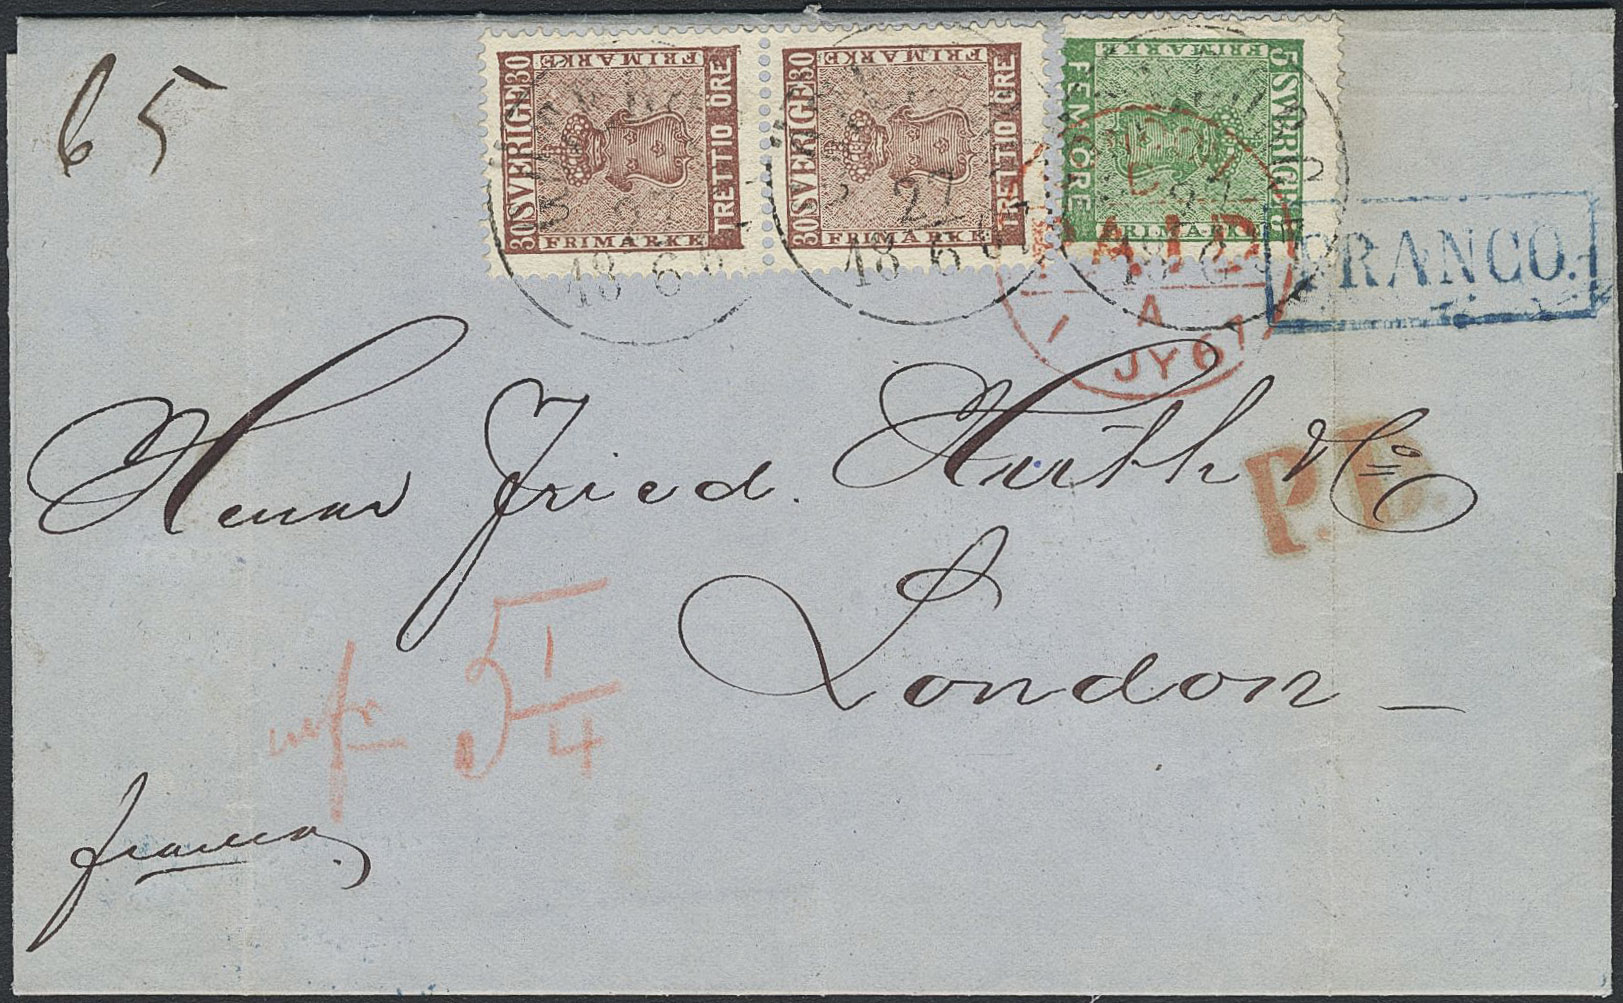 65
30 SVERIGE 30
FRIMARKE
TRETTIO ÖRE
FRIMARKE
30 SVERIGE 30
FRIMARKE
TRETTIO ÖRE
FRIMARKE
5 SVERIGE 5
FRIMARKE
FEM ÖRE
FRIMARKE
27
18 6
27
18 6
PAID
A
1 JY 67
FRANCO.
P.D.
Herrar Fried. Huth & Co
London
5 1/4
franco